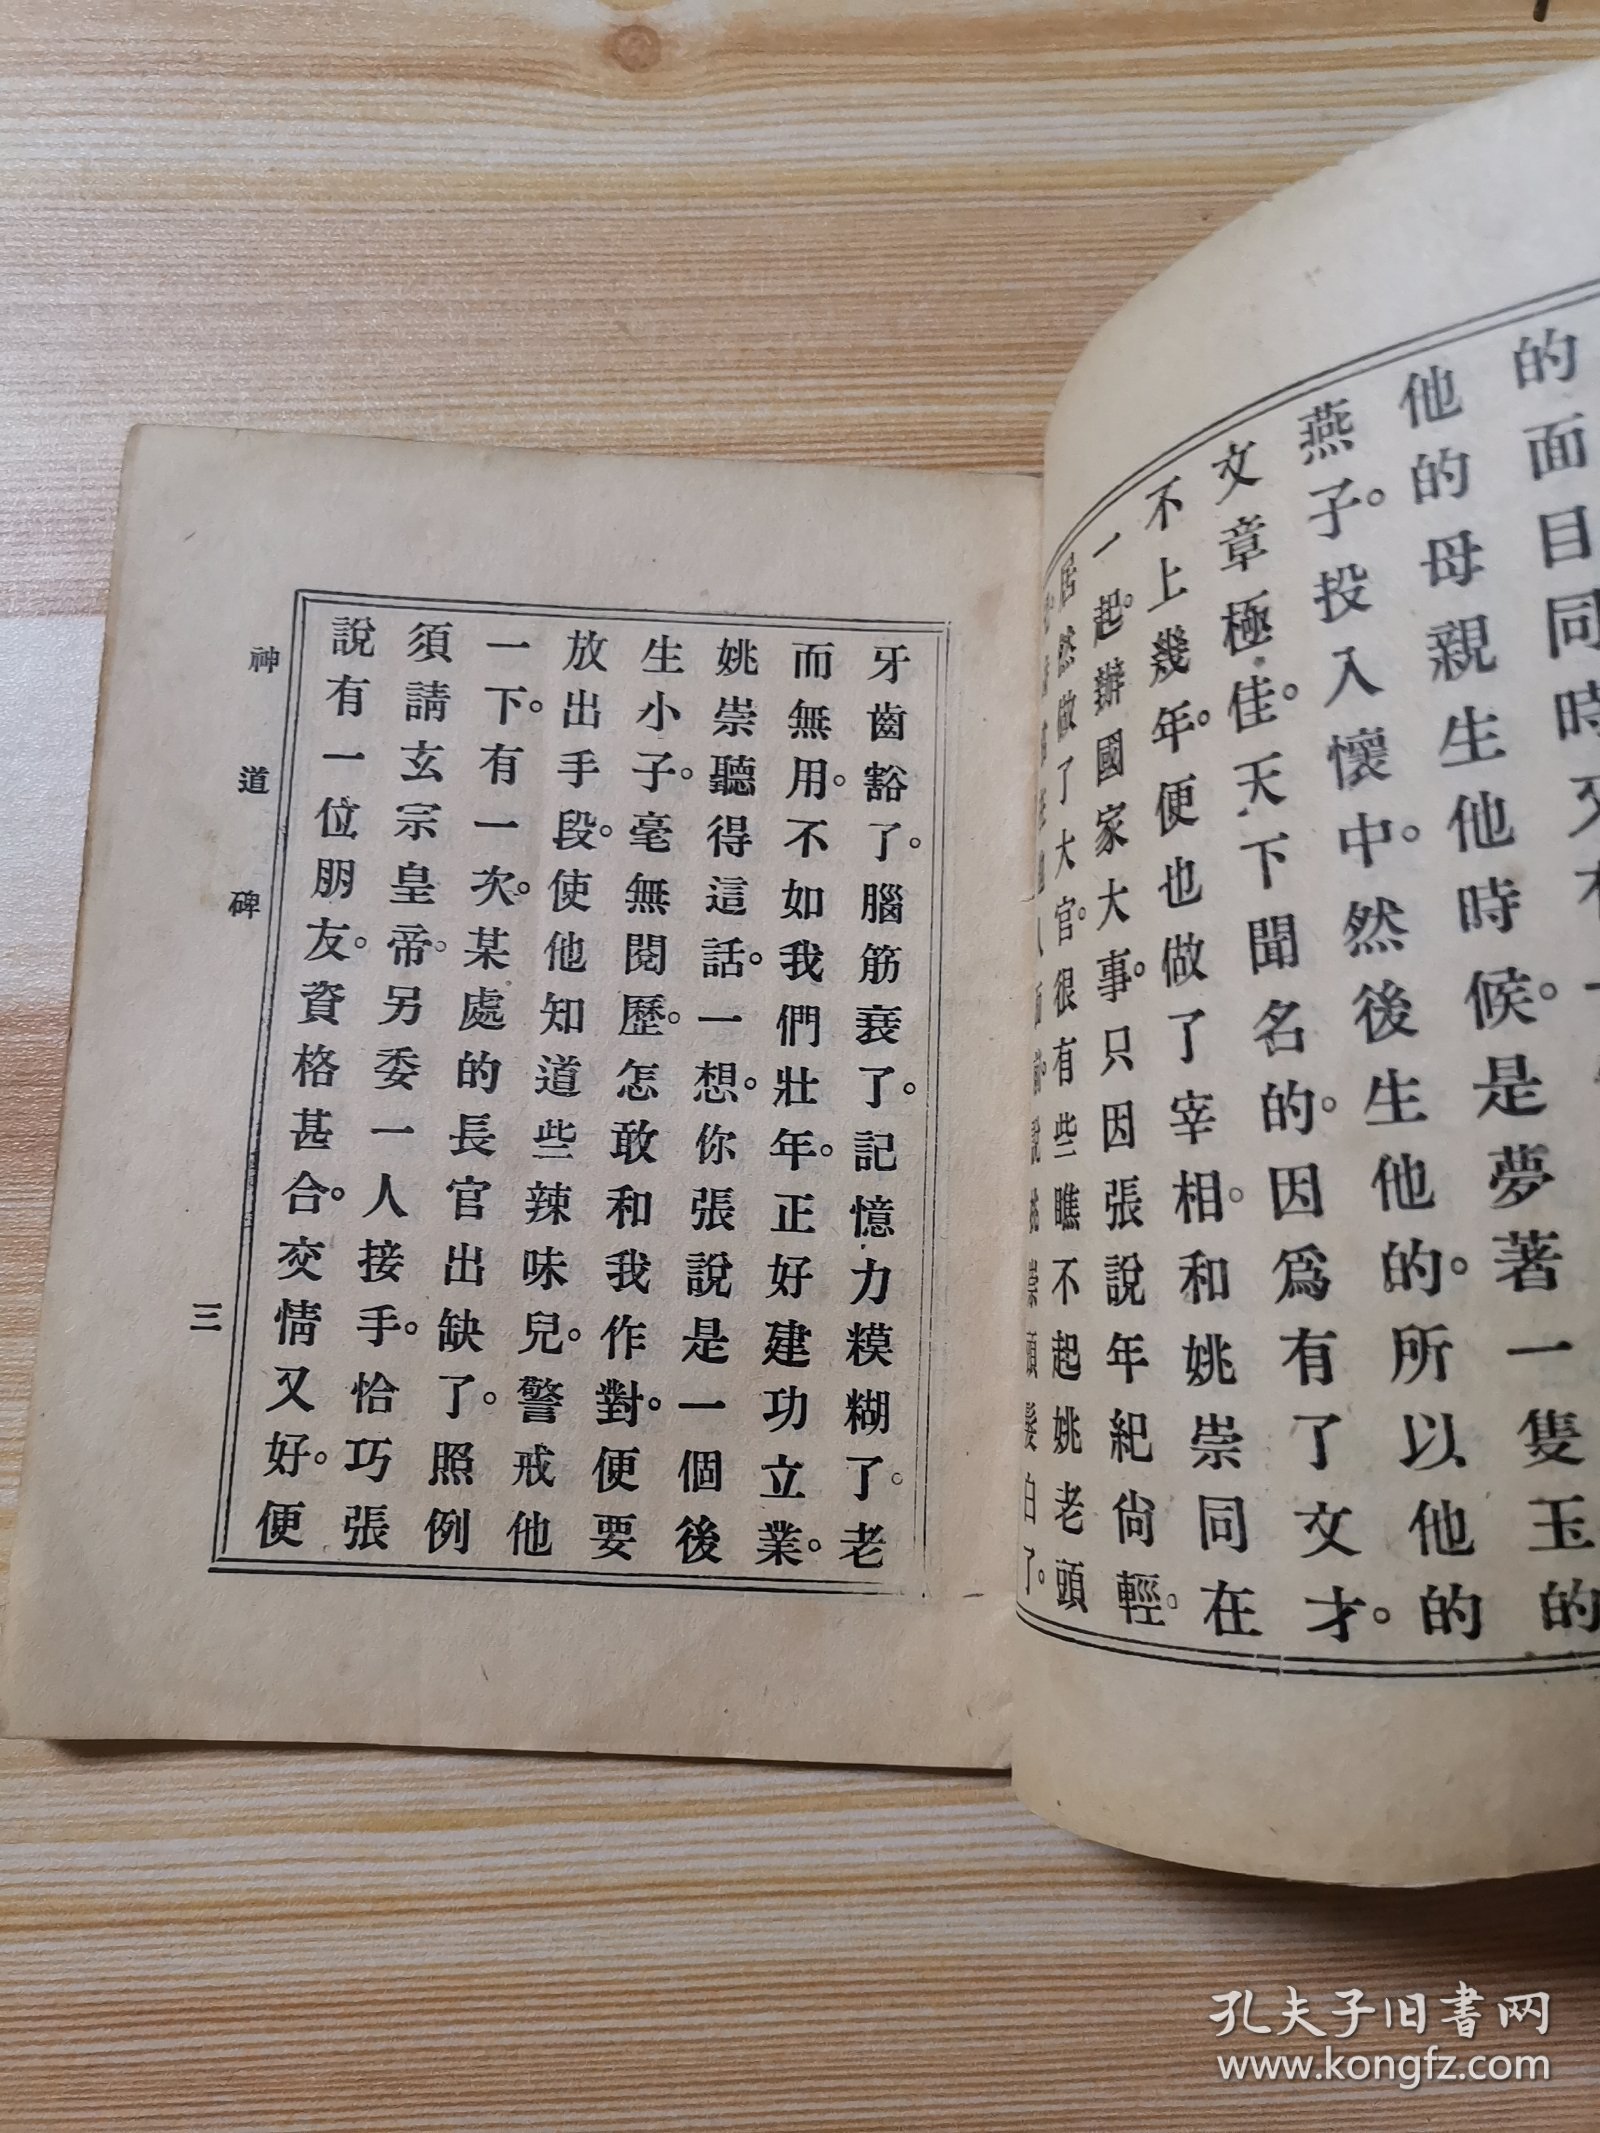 的面目同時又有一
他的母親生他時候。是夢著一隻玉的
燕子。投入懷中。然後生他的。所以他的
文章極佳。天下聞名的。因爲有了文才。
不上幾年。便也做了宰相。和姚崇同在
一起。辦國家大事。只因張說年紀尙輕。
居然做了大官。很有些瞧不起姚老頭
說姚崇頭髮白了。
牙齒豁了。腦筋衰了。記憶力糢糊了。老
而無用。不如我們壯年。正好建功立業。
姚崇聽得這話。一想。你張說是一個後
生小子。毫無閱歷。怎敢和我作對。便要
放出手段。使他知道些辣味兒。警戒他
一下。有一次。某處的長官出缺了。照例
須請玄宗皇帝。另委一人接手。恰巧張
說有一位朋友。資格甚合。交情又好。便
神道碑
三
孔夫子旧书网
www.kongfz.com